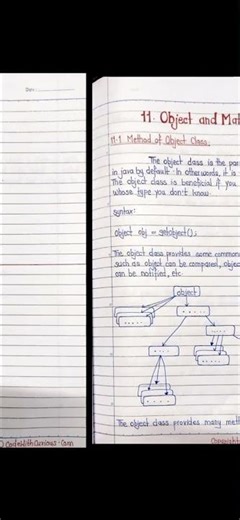 Date:
11. Object and Mat
11.1 Method of Object Class.
The object class is the par
in java by default. In other words, it is
The object class is beneficial if you
whose type you don't know.
syntax:
Object obj = getobject();
The object class provides some common
such as object can be compared, objec
can be notified, etc.
object
The object class provides many meth
CodeWithCurious.Com
Copyright